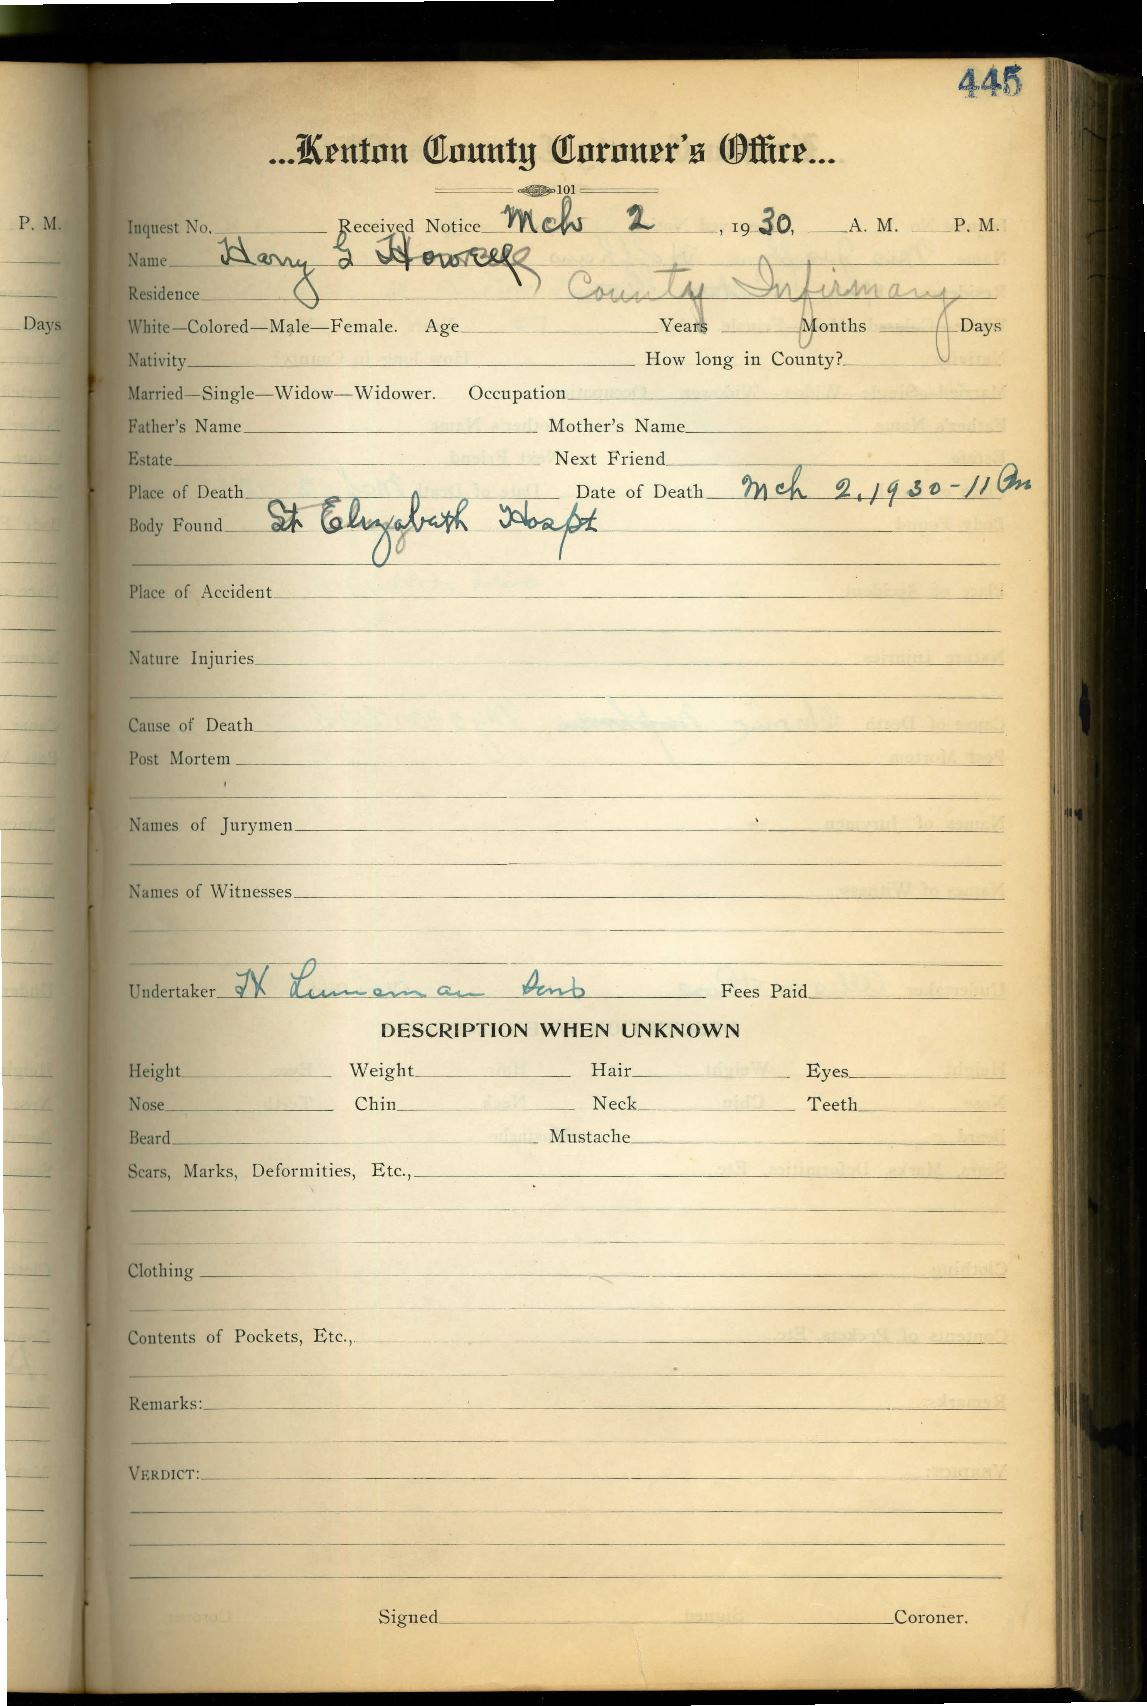 445
...Kenton County Coroner's Office...
101
P. M. Inquest No. Received Notice Mch 2, 1930, A. M. P. M.
Name Harry G Howell
Residence County Infirmary
Days White—Colored—Male—Female. Age Years Months Days
Nativity How long in County?
Married—Single—Widow—Widower. Occupation
Father's Name Mother's Name
Estate Next Friend
Place of Death Date of Death Mch 2, 1930-11 Am
Body Found St Elizabeth Hospt
Place of Accident
Nature Injuries
Cause of Death
Post Mortem
Names of Jurymen
Names of Witnesses
Undertaker H Linneman Sons Fees Paid
DESCRIPTION WHEN UNKNOWN
Height Weight Hair Eyes
Nose Chin Neck Teeth
Beard Mustache
Scars, Marks, Deformities, Etc.,
Clothing
Contents of Pockets, Etc.,
Remarks:
VERDICT:
Signed Coroner.